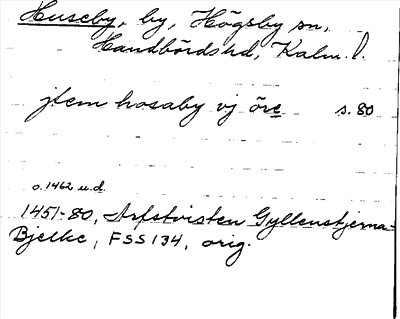 Huseby, by, Högsby sn,
Handbörds hd, Kalm. l.
jtem hosaby vj öre s. 80
o. 1462 u.d.
1451-80, Arfstvisten Gyllenstjerna-
Bjelke, FSS 134, orig.